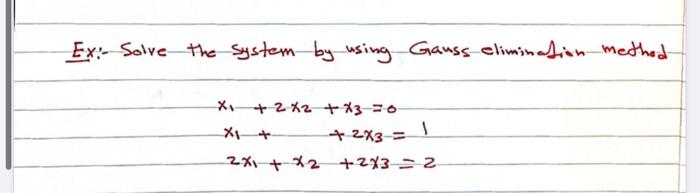 Ex:- Solve the system by using Gauss elimination method
x₁ + 2x₂ + x₃ = 0
x₁ + + 2x₃ = 1
2x₁ + x₂ + 2x₃ = 2